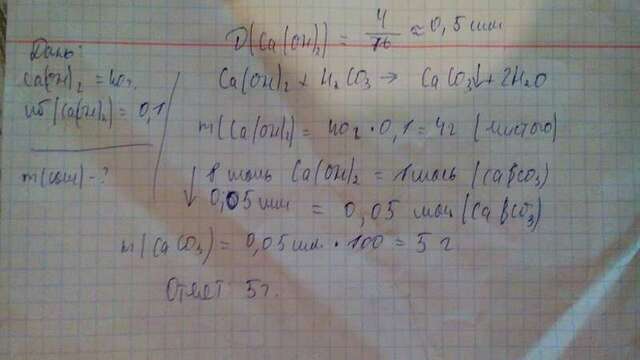 Дано:
Ca(OH)₂ = 40г.
ω(Ca(OH)₂) = 0,1
m(соли) - ?
ν(Ca(OH)₂) = 4/76 ≈ 0,5 моль
Ca(OH)₂ + H₂CO₃ → CaCO₃↓ + 2H₂O
m(Ca(OH)₂) = 40г · 0,1 = 4г (чистого)
1 моль Ca(OH)₂ = 1 моль (CaCO₃)
0,05 моль = 0,05 моль (CaCO₃)
m(CaCO₃) = 0,05 моль · 100 = 5 г
Ответ: 5г.